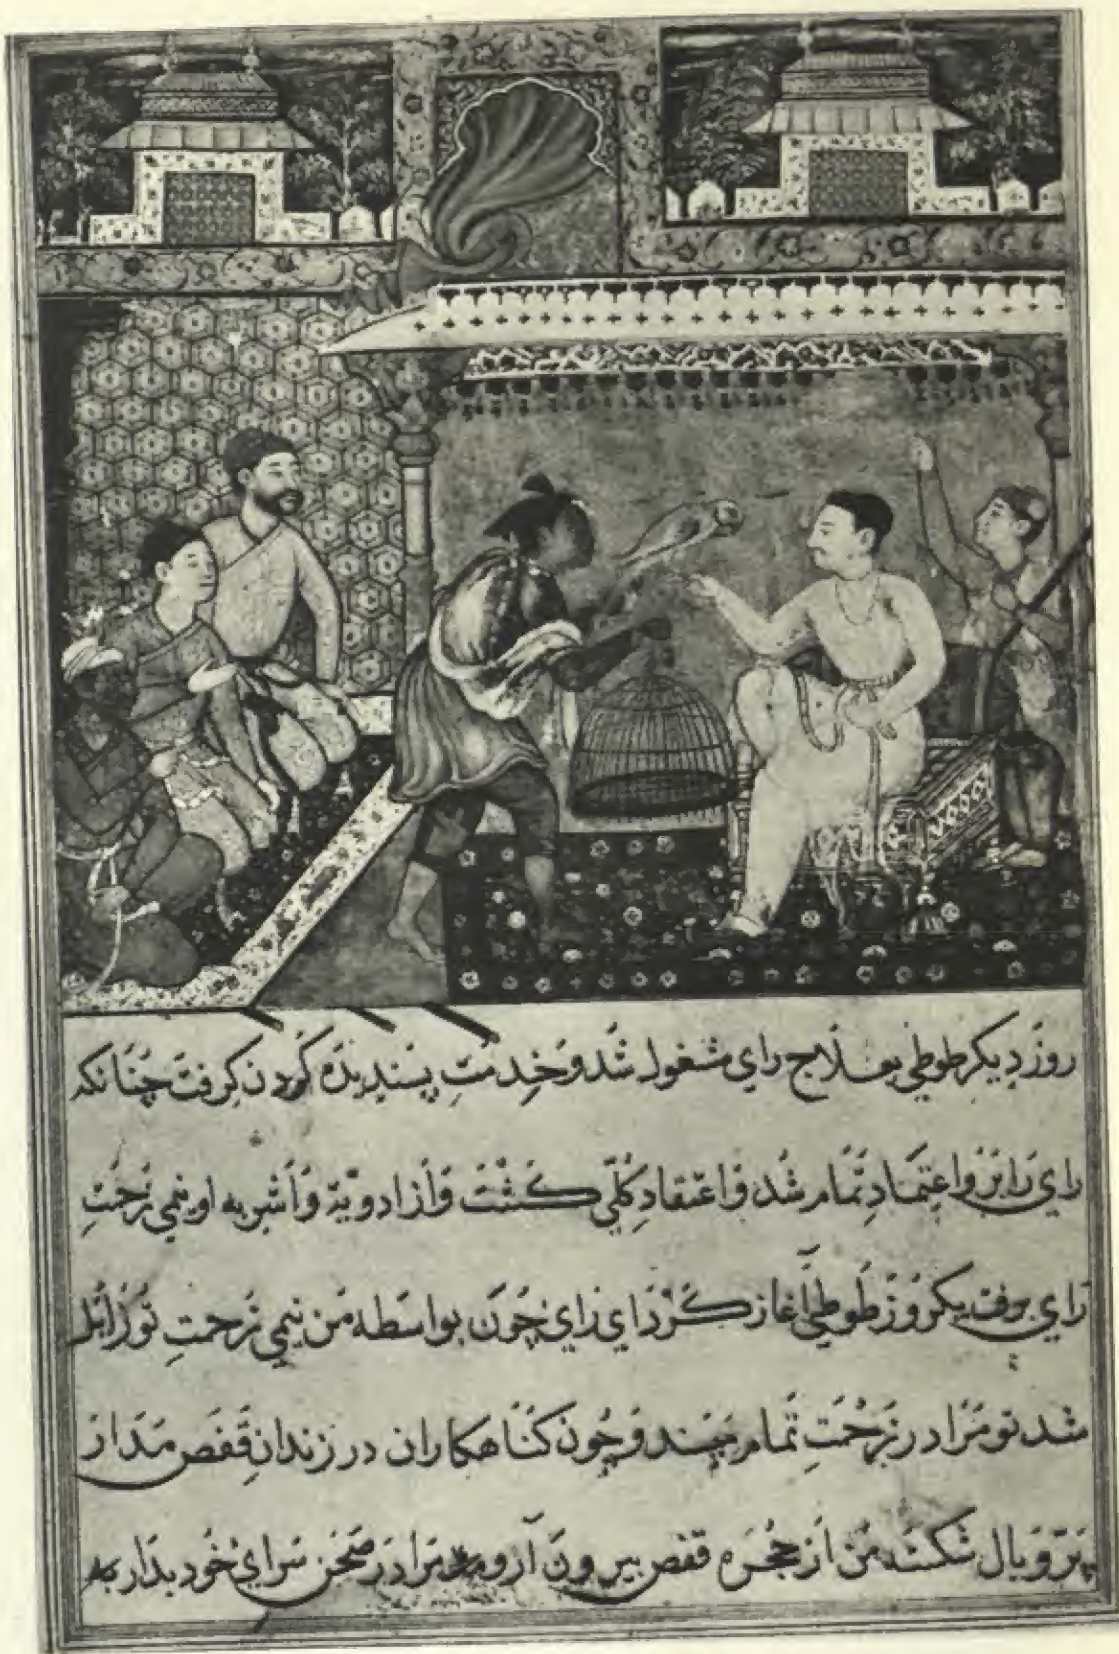 روز دیکر طوطی بعلاج رای مشغول شد و خدمت پسندیده کردن کرفت چنانکه
رای را برو اعتماد تمام شد و اعتقاد کلی کشت و از ادویه و اشربه او نیمی زحمت
رای برفت یکروز طوطی اغاز کرد ای رای چون بواسطه من نیمی زحمت تو زایل
شد تو مرا در زحمت تمام مپسند و چون کناهکاران در زندان قفص مدار
پر و بال شکسته من از حجره قفص بیرون آر و مرا در صحن سرای خود بدار